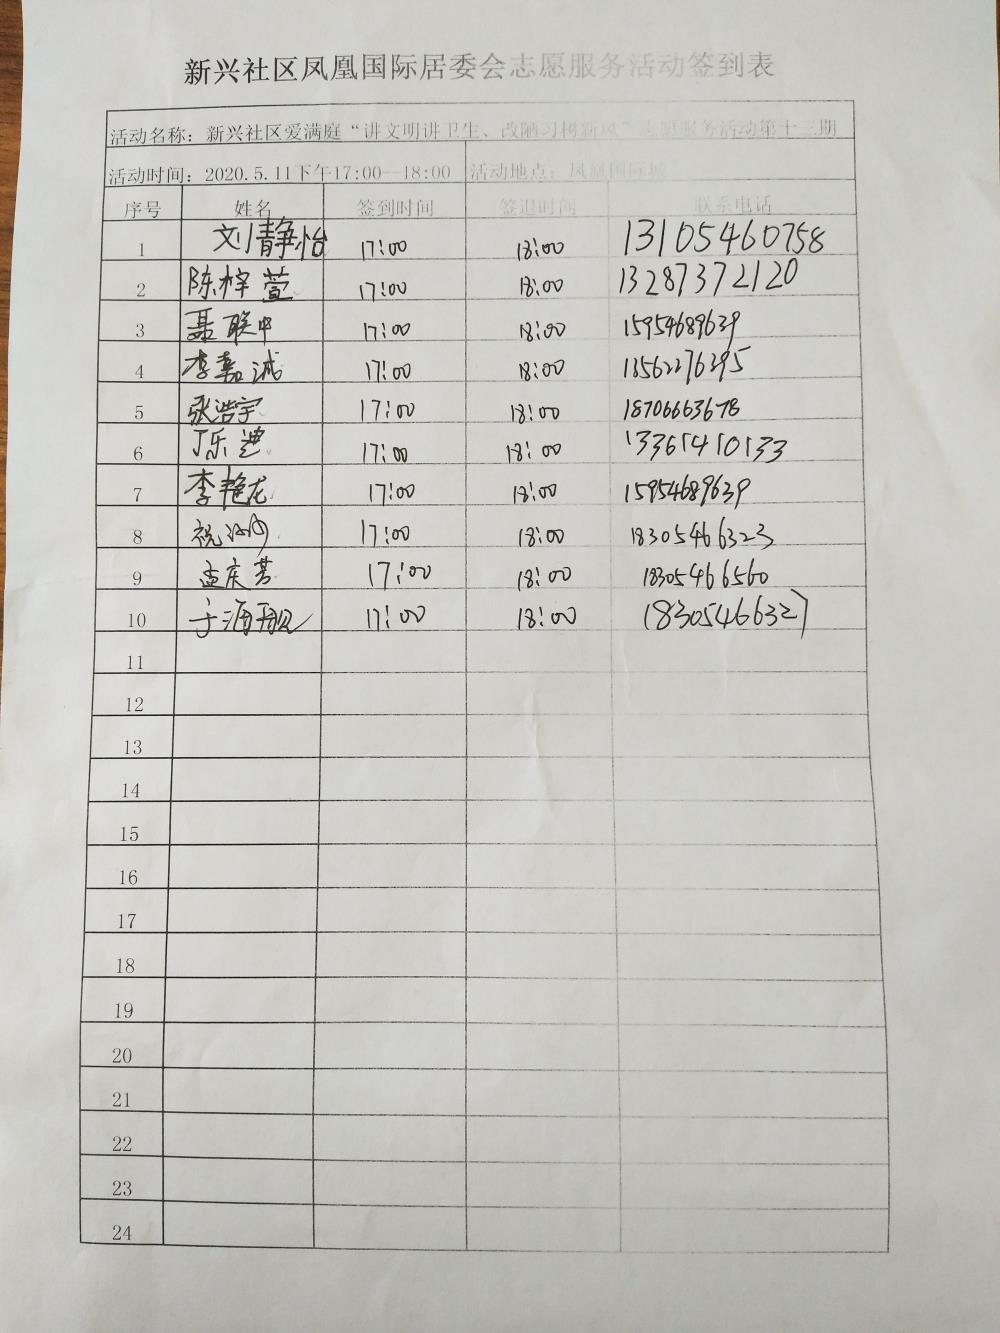 新兴社区凤凰国际居委会志愿服务活动签到表
活动名称：新兴社区爱满庭“讲文明讲卫生、改陋习树新风”志愿服务活动第十三期
活动时间：2020.5.11下午17:00—18:00 活动地点：凤凰国际城
序号 姓名 签到时间 签退时间 联系电话
1 刘静怡 17:00 18:00 13105460758
2 陈梓萱 17:00 18:00 13287372120
3 聂联中 17:00 18:00 15954689639
4 李嘉诚 17:00 18:00 13562276395
5 张浩宇 17:00 18:00 18706663678
6 丁乐迪 17:00 18:00 13361410133
7 李艳龙 17:00 18:00 15954689639
8 祝 17:00 18:00 18305466323
9 孟庆芳 17:00 18:00 18305466560
10 于海靓 17:00 18:00 18305466327
11
12
13
14
15
16
17
18
19
20
21
22
23
24